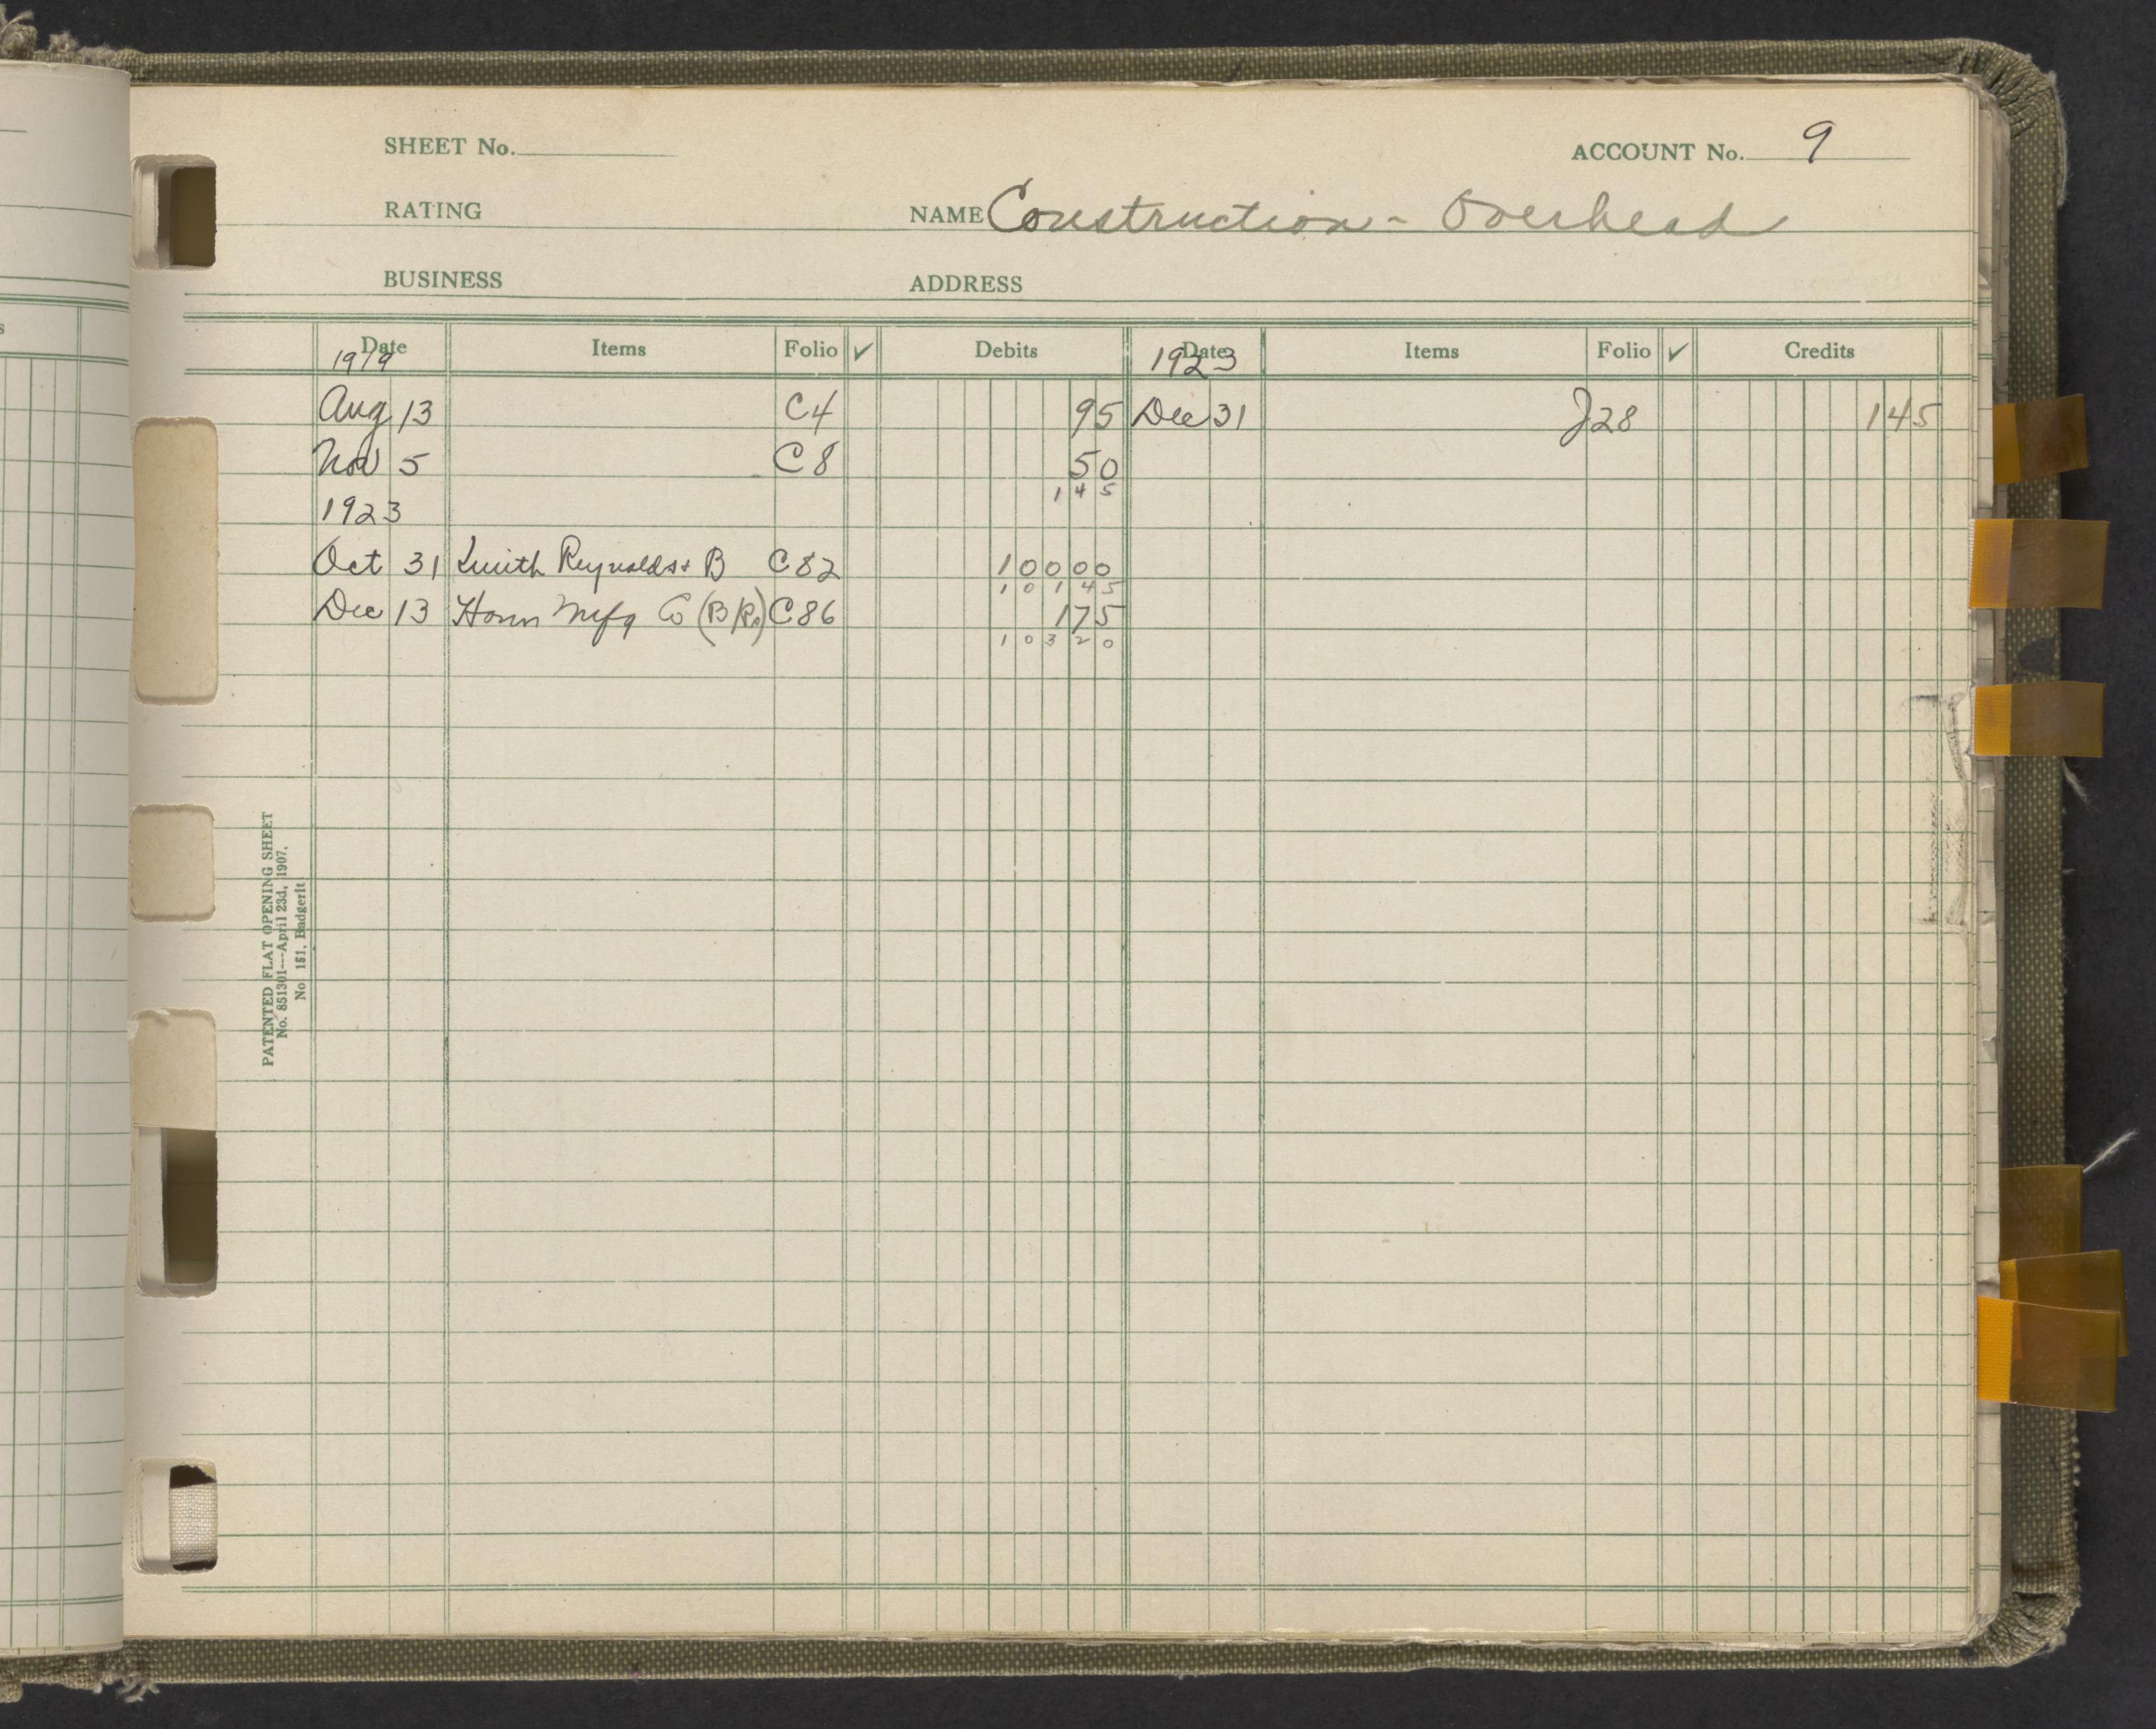 SHEET No. ACCOUNT No. 9
RATING NAME Construction - Overhead
BUSINESS ADDRESS
Date Items Folio ✓ Debits Date Items Folio ✓ Credits
1919 1923
Aug 13 C4 95 Dec 31 J28 145
Nov 5 C8 50
145
1923
Oct 31 Smith Reynolds & B C82 10000
10145
Dec 13 Mfg Co (B/R) C86 175
10320
PATENTED FLAT OPENING SHEET
No. 851301—April 23d, 1907.
No. 151, Badgerlt
s